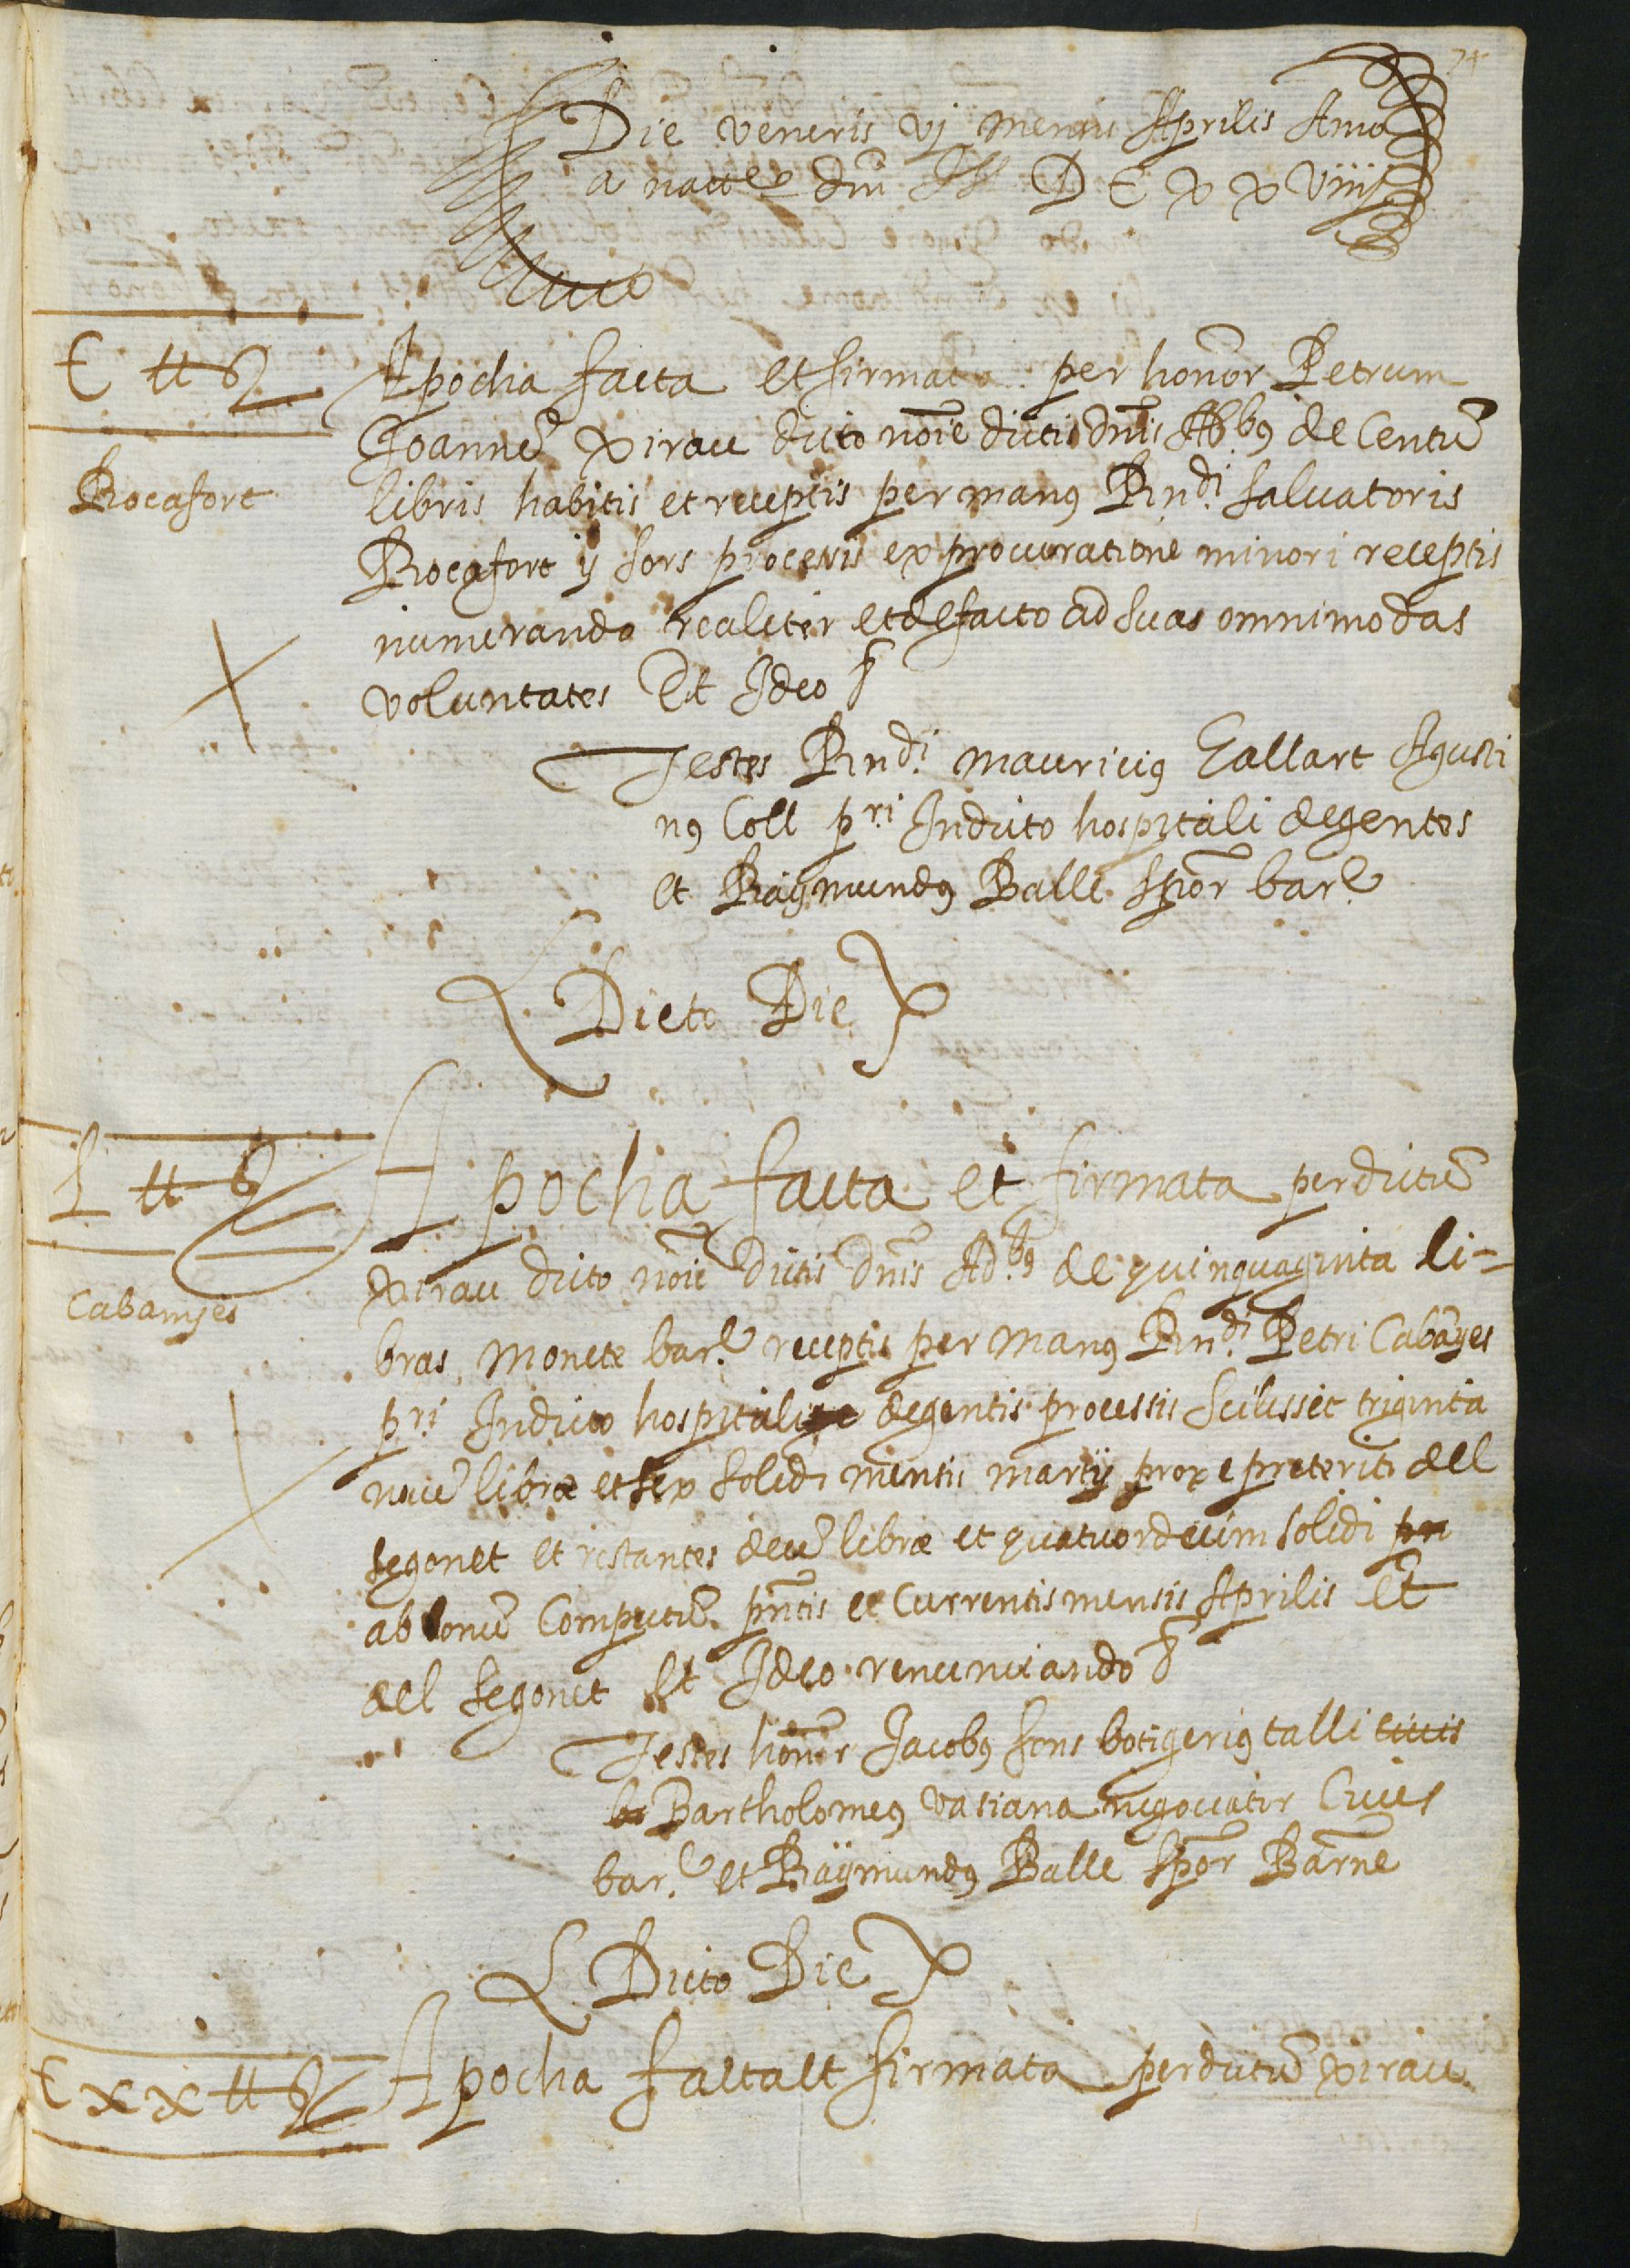 74
Die veneris vj mensis Aprilis Anno
a natte dni M D C x x viiij
C tt s
Apocha facta et firmata per honor Petrum
Joannē Xirau dicto noīe dictis dnīs Abbꝯ de Centū
Rocafort
libris habitis et receptis per manꝯ Rndi. Salvatoris
Rocafort ij sors procesis ex procuratione minori receptis
numerando realiter et de facto ad suas omnimodas
voluntates Et Ideo
Testes Rndi. Mauriciꝯ Gallart Agusti
nꝯ Coll pri. In dicto hospitali degentes
et Raymundꝯ Balle spōr bar.
Dicto Die
L tt s
Apocha facta et firmata per dictū
Xirau dicto noīe dictis dnīs Ad.bꝯ de quinquaginta li-
Cabanyes
bras, Monete bar. receptis per manꝯ Rndi. Petri Cabāyes
pri. In dicto hospitali degentis processis scilissēt triginta
nuē libræ et sex solidi mensis martij prox e preteriti del
segonet et restantes decē libræ et quatuordecim solidi pn
ab bonū Computū pn̄tis et Currentis mensis Aprilis Et
del segonet Et Ideo renunciando
Testes honōr Jacobꝯ fons botigeriꝯ talli civis
ba Bartholomeꝯ Vasiana negociator Cives
bar. et Raÿmundꝯ Balle spōr Barn̄e
Dicto Die
C x x tt s
Apocha facta et firmata per dictū Xirau